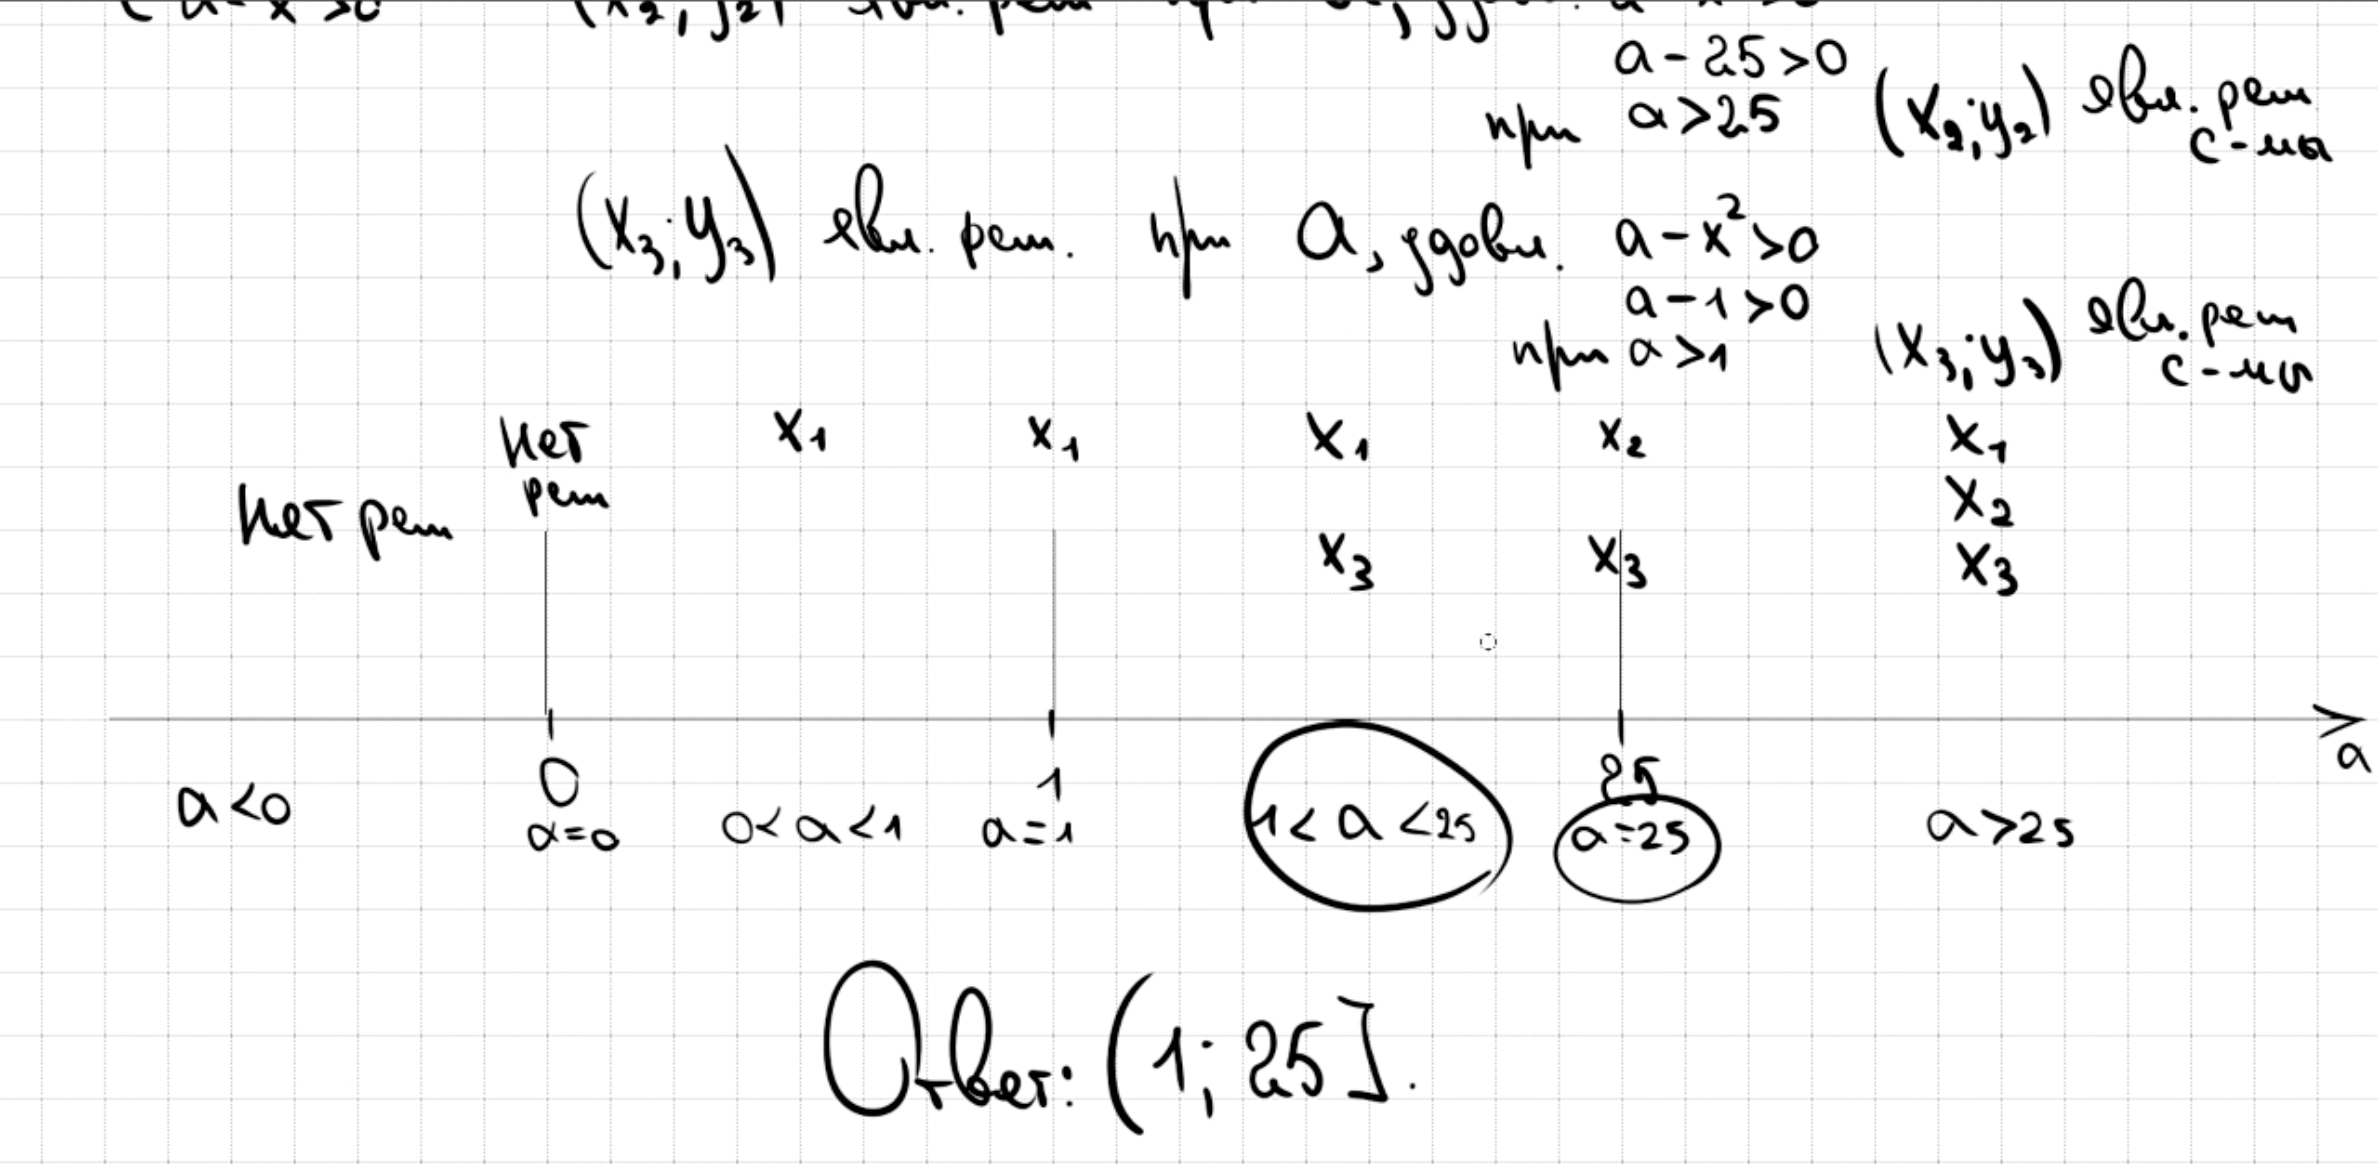 a - 25 > 0
при a > 25 (x₂; y₂) явл. реш
с-мы
(x₃; y₃) явл. реш. при a, удовл. a - x² > 0
a - 1 > 0
при a > 1 (x₃; y₃) явл. реш
с-мы
Нет реш
Нет реш
x₁
x₁
x₁
x₃
x₂
x₃
x₁
x₂
x₃
0
1
25
a
a < 0
a = 0
0 < a < 1
a = 1
1 < a < 25
a = 25
a > 25
Ответ: (1; 25].